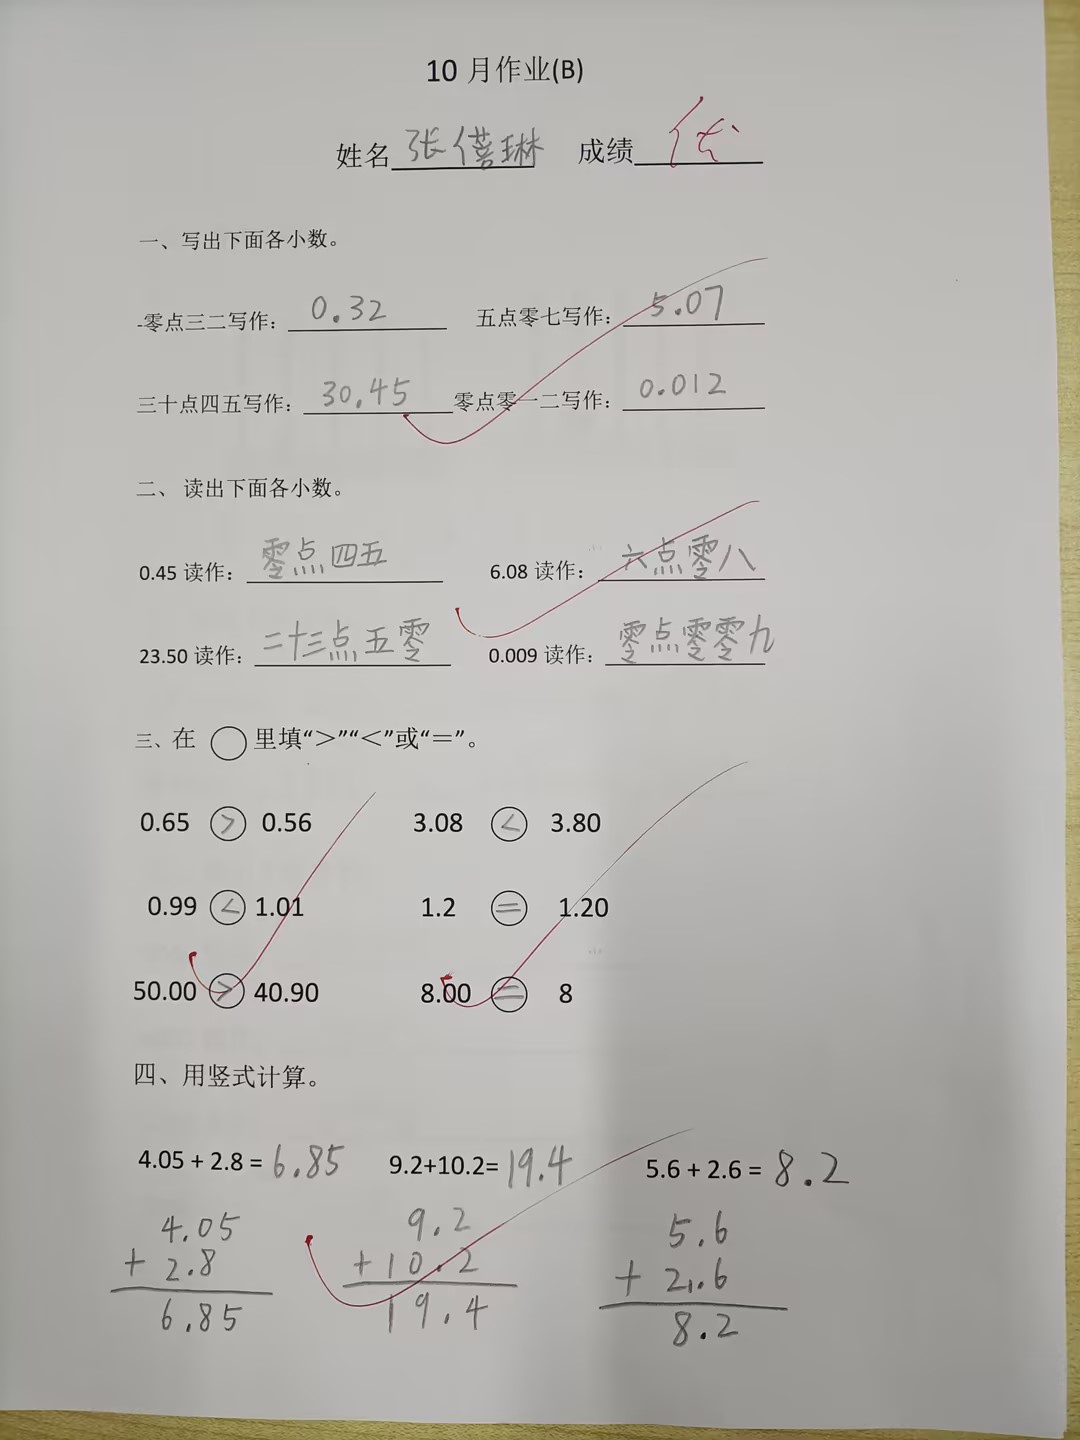 10 月作业(B)
姓名 张僖琳 成绩 优
一、写出下面各小数。
-零点三二写作：0.32 五点零七写作：5.07
三十点四五写作：30.45 零点零一二写作：0.012
二、 读出下面各小数。
0.45 读作：零点四五 6.08 读作：六点零八
23.50 读作：二十三点五零 0.009 读作：零点零零九
三、在 ○ 里填“＞”“＜”或“＝”。
0.65 > 0.56 3.08 < 3.80
0.99 < 1.01 1.2 = 1.20
50.00 > 40.90 8.00 = 8
四、用竖式计算。
4.05 + 2.8 = 6.85 9.2+10.2= 19.4 5.6 + 2.6 = 8.2
4.05 9.2 5.6
+ 2.8 + 10.2 + 2.6
6.85 19.4 8.2